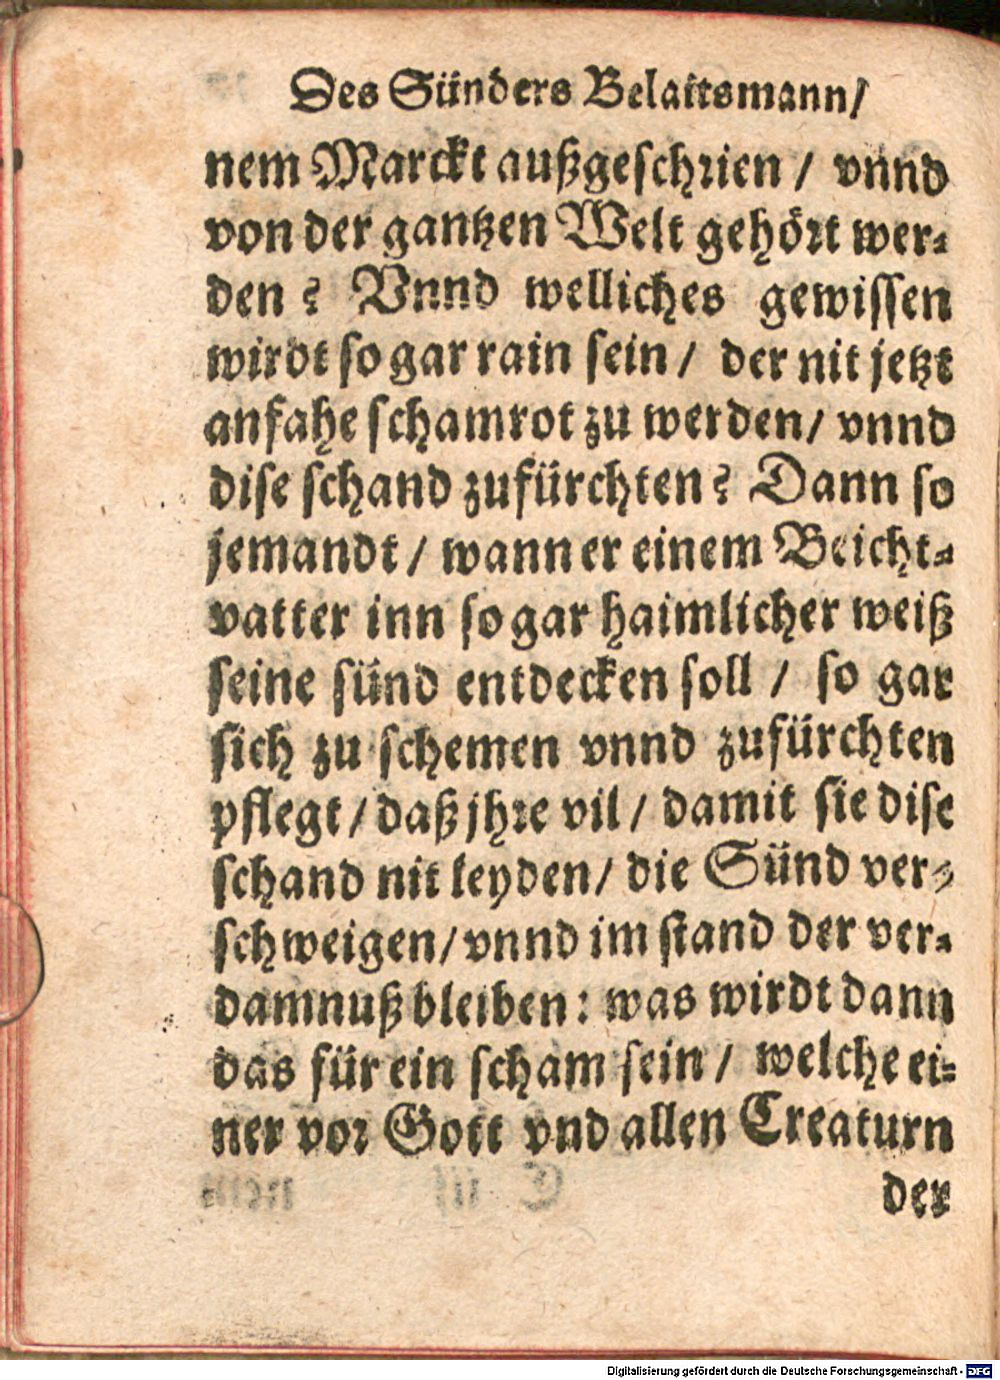 Des Sünders Belaitsmann/
nem Marckt außgeschrien / vnnd
von der gantzen Welt gehört wer-
den ? Vnnd welliches gewissen
wirdt so gar rain sein / der nit jetzt
anfahe schamrot zu werden/ vnnd
dise schand zufürchten? Dann so
jemandt / wann er einem Beicht-
vatter inn so gar haimlicher weiß
seine sünd entdecken soll / so gar
sich zu schemen vnnd zufürchten
pflegt / daß jhre vil / damit sie dise
schand nit leyden/ die Sünd ver-
schweigen/ vnnd im stand der ver-
damnuß bleiben: was wirdt dann
das für ein scham sein / welche ei-
ner vor Gott vnd allen Creaturn
der
Digitalisierung gefördert durch die Deutsche Forschungsgemeinschaft - DFG